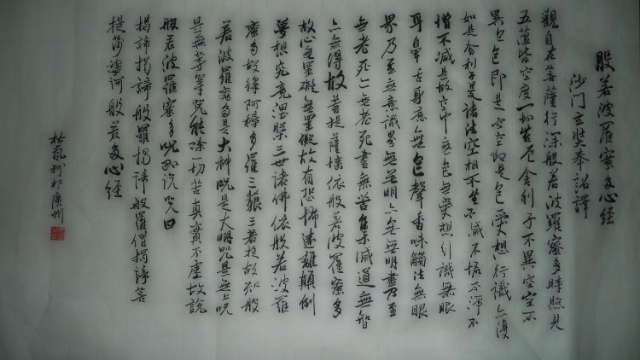 般若波羅蜜多心經
沙门玄奘奉詔譯
觀自在菩薩行深般若波羅蜜多時照見
五蘊皆空度一切苦厄舍利子不異空空不
異色色即是空空即是色受想行識亦復
如是舍利子是諸法空相不生不滅不垢不淨不
增不減是故空中無色無受想行識無眼
耳鼻舌身意無色聲香味觸法無眼
界乃至無意識界無無明亦無無明盡乃至
無老死亦無老死盡無苦集滅道無智
亦無得故菩提薩埵依般若波羅蜜多
故心無罣礙無罣礙故有恐怖遠離顛倒
夢想究竟涅槃三世諸佛依般若波羅
蜜多故得阿耨多羅三藐三菩提故知般
若波羅蜜多是大神咒是大明咒是無上咒
是無等等咒能除一切苦真實不虛故說
般若波羅蜜多咒即說咒曰
揭諦揭諦般羅揭諦般羅僧揭諦菩
提莎婆訶般若多心經
於廣州